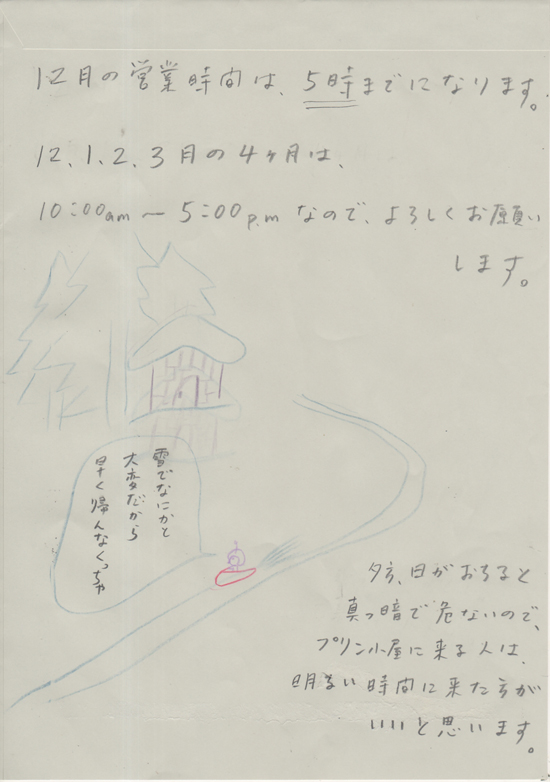 12月の営業時間は、5時までになります。
12、1、2、3月の4ヶ月は、
10:00am〜5:00p.mなので、よろしくお願い
します。
雪でなにかと
大変だから
早く帰んなくっちゃ
夕方、日がおちると
真っ暗で危ないので、
プリン小屋に来る人は、
明るい時間に来た方が
いいと思います。